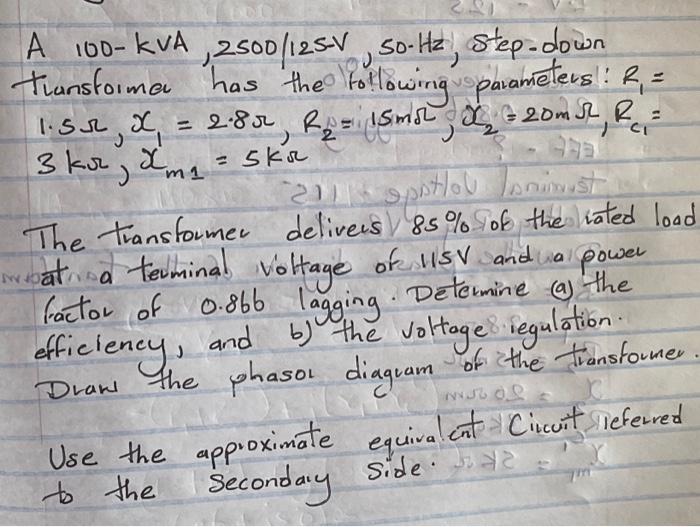 A 100-kVA, 2500/125-V, 50-Hz, step-down
transformer has the following parameters: R₁ =
1.5Ω, X₁ = 2.8Ω, R₂ = 15mΩ, X₂ = 20mΩ, Rc₁ =
3kΩ, Xm1 = 5kΩ
The transformer delivers 85% of the rated load
at a terminal voltage of 115V and a power
factor of 0.866 lagging. Determine (a) the
efficiency, and b) the voltage regulation.
Draw the phasor diagram of the transformer.
Use the approximate equivalent Circuit referred
to the Secondary Side.